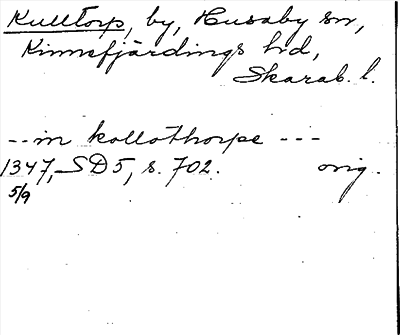 Kulltorp, by, Husaby sn,
Kinnefjärdings hd,
Skarab. l.
-- in kollothorpe ---
1347, SD5, s. 702. orig.
5/9